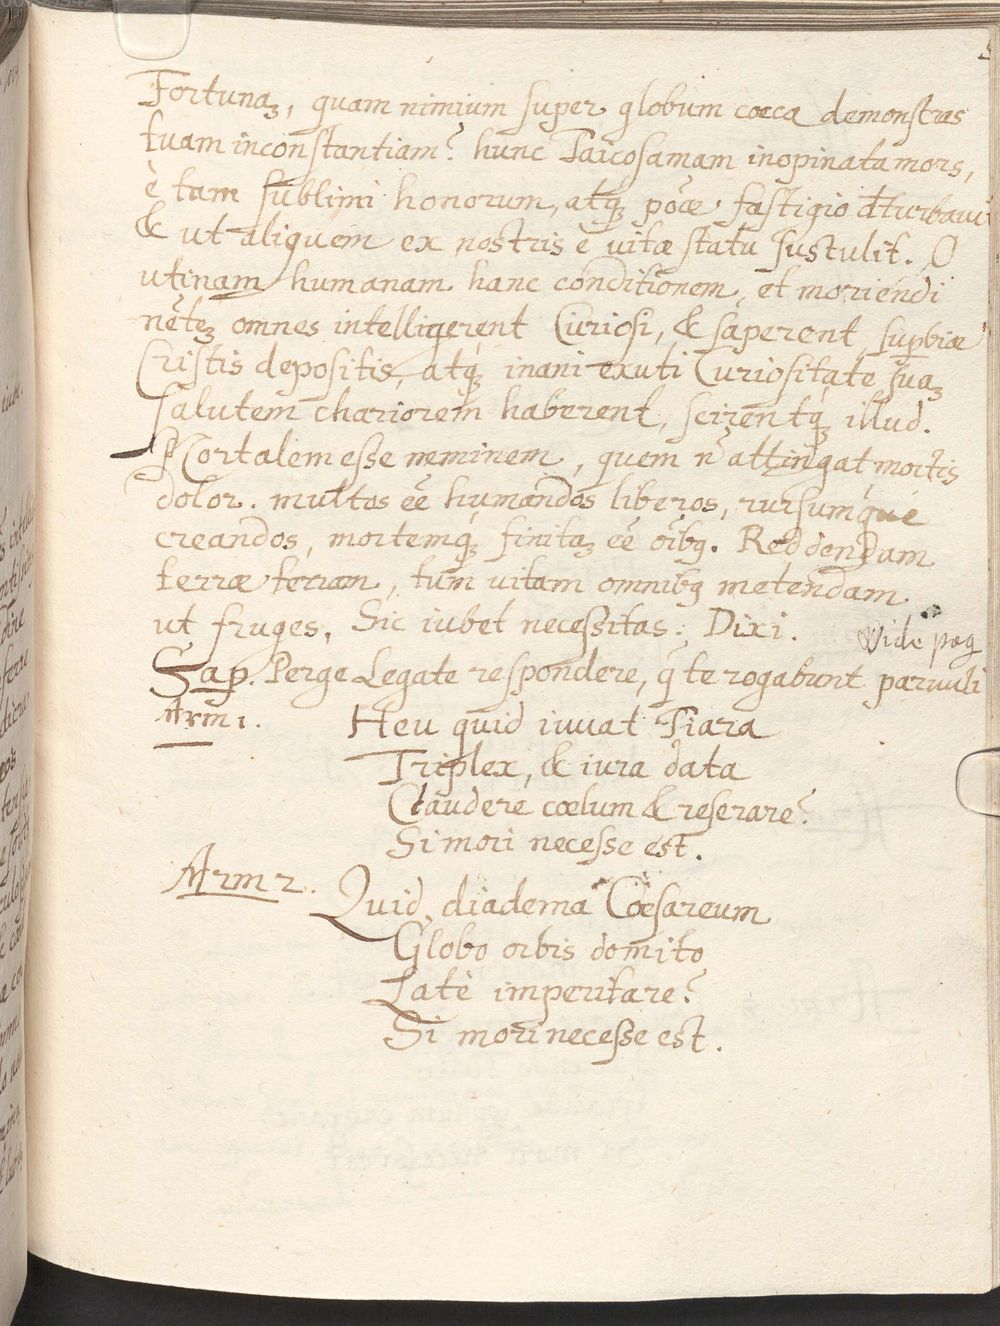 Fortunaꝫ, quam nimium super globum coeca demonstras
tuam inconstantiam? hunc Taicosamam inopinata mors,
è tam sublimi honorum, atqꝫ poæ fastigio dturbavi
& ut aliquem ex nostris è vitæ statu sustulit. O
utinam humanam hanc conditionem, et moriendi
nētēꝫ omnes intelligerent Curiosi, & saperent, supbiæ
Cristis depositis, atqꝫ inani exuti Curiositate, suaꝫ
salutem chariorem haberent, scirentqꝫ illud.
Mortalem esse neminem, quem n̄ attingat mortis
dolor. multos eē humandos liberos, rursumque
creandos, mortemqꝫ finitaꝫ eē oībꝫ. Reddendam
terræ terram, tum vitam omnibꝫ metendam
ut fruges, Sic iubet necessitas. Dixi.
Vide pag
Sap. Perge Legate respondere, q̄ te rogabunt parvuli
Arm 1. Heu quid iuvat Tiara
Triplex, & iura data
Claudere cœlum & reserare?
Si mori necesse est.
Arm 2. Quid diadema Cæsareum
Globo orbis domito
Latè imperitare?
Si mori necesse est.